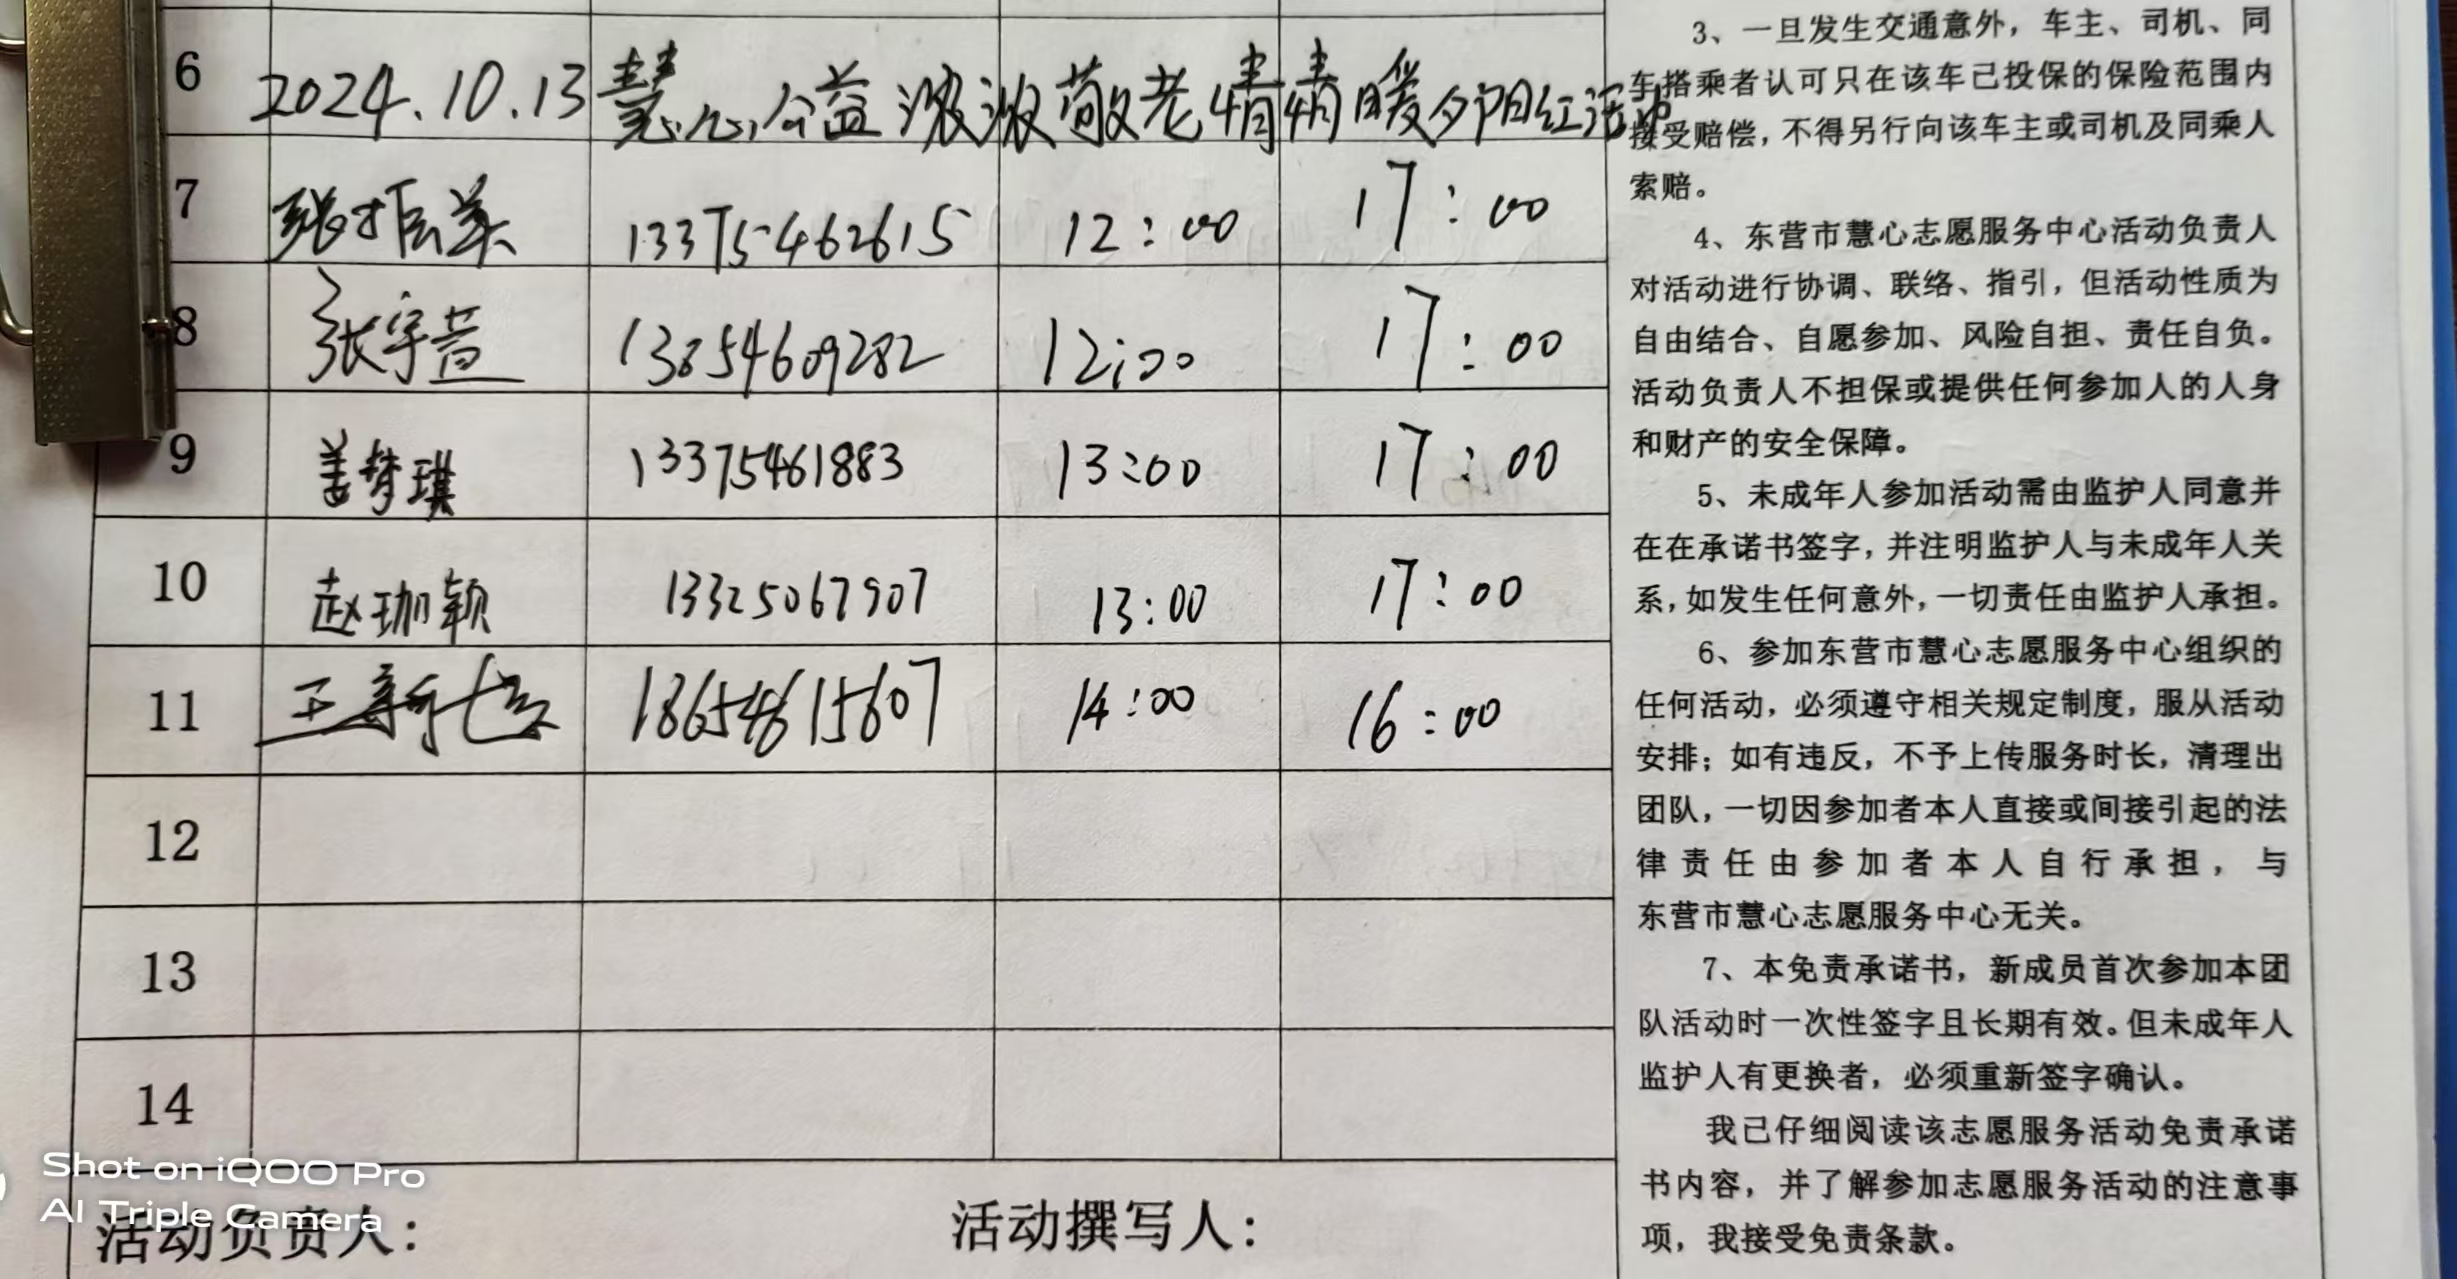 6 2024.10.13 慧心公益浓浓敬老情情暖夕阳红活动
7 张振英 13375462615 12:00 17:00
8 张宇萱 13854609282 12:00 17:00
9 姜梦琪 13375461883 13:00 17:00
10 赵珈颖 13325067907 13:00 17:00
11 王 18654615607 14:00 16:00
12
13
14
活动负责人： 活动撰写人：
3、一旦发生交通意外，车主、司机、同
车搭乘者认可只在该车已投保的保险范围内
接受赔偿，不得另行向该车主或司机及同乘人
索赔。
4、东营市慧心志愿服务中心活动负责人
对活动进行协调、联络、指引，但活动性质为
自由结合、自愿参加、风险自担、责任自负。
活动负责人不担保或提供任何参加人的人身
和财产的安全保障。
5、未成年人参加活动需由监护人同意并
在在承诺书签字，并注明监护人与未成年人关
系，如发生任何意外，一切责任由监护人承担。
6、参加东营市慧心志愿服务中心组织的
任何活动，必须遵守相关规定制度，服从活动
安排；如有违反，不予上传服务时长，清理出
团队，一切因参加者本人直接或间接引起的法
律责任由参加者本人自行承担，与
东营市慧心志愿服务中心无关。
7、本免责承诺书，新成员首次参加本团
队活动时一次性签字且长期有效。但未成年人
监护人有更换者，必须重新签字确认。
我已仔细阅读该志愿服务活动免责承诺
书内容，并了解参加志愿服务活动的注意事
项，我接受免责条款。
Shot on iQOO Pro
AI Triple Camera